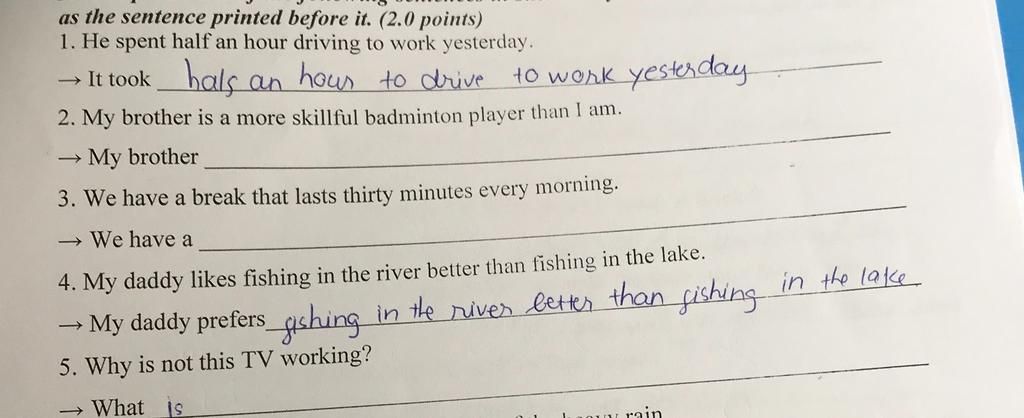 as the sentence printed before it. (2.0 points)
1. He spent half an hour driving to work yesterday.
→ It took hals an hour to drive to work yesterday
2. My brother is a more skillful badminton player than I am.
→ My brother
3. We have a break that lasts thirty minutes every morning.
→ We have a
4. My daddy likes fishing in the river better than fishing in the lake.
→ My daddy prefers fishing in the river better than fishing in the lake
5. Why is not this TV working?
→ What is
rain